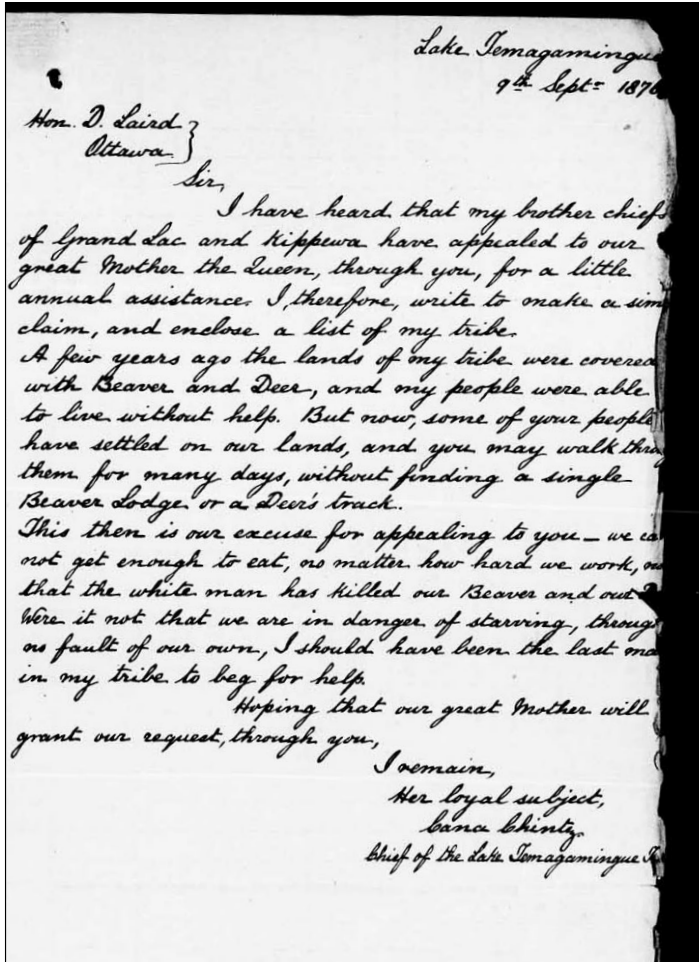 Lake Temagamingue
9th Sept= 1876
Hon. D. Laird }
Ottawa. }
Sir,
I have heard that my brother chiefs
of Grand Lac and Kippewa have appealed to our
great Mother the Queen, through you, for a little
annual assistance. I, therefore, write to make a sim
claim, and enclose a list of my tribe.
A few years ago the lands of my tribe were covered
with Beaver and Deer, and my people were able
to live without help. But now, some of your people
have settled on our lands, and you may walk throu
them for many days, without finding a single
Beaver Lodge or a Deer's track.
This then is our excuse for appealing to you — we ca
not get enough to eat, no matter how hard we work, no
that the white man has killed our Beaver and our D
Were it not that we are in danger of starving, through
no fault of our own, I should have been the last ma
in my tribe to beg for help.
Hoping that our great Mother will
grant our request, through you,
I remain,
Her loyal subject,
Cana Chintz.
Chief of the Lake Temagamingue